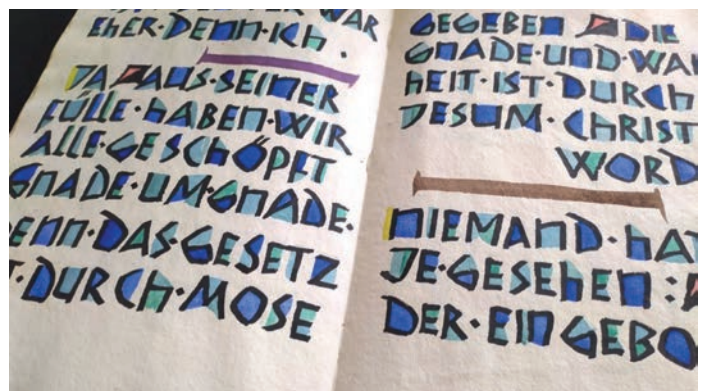 WAR
EHER·DENN·ICH.
JA AUS·SEINER
FÜLLE·HABEN·WIR
ALLE·GESCHÖPFT
GNADE·UM·GNADE.
ENN·DAS·GESETZ
T·DURCH·MOSE
GEGEBEN DIE
GNADE·UND·WA
HEIT·IST·DURCH
JESUM·CHRIST
WORD
NIEMAND·HAT
JE·GESEHEN:
DER·EINGEBO